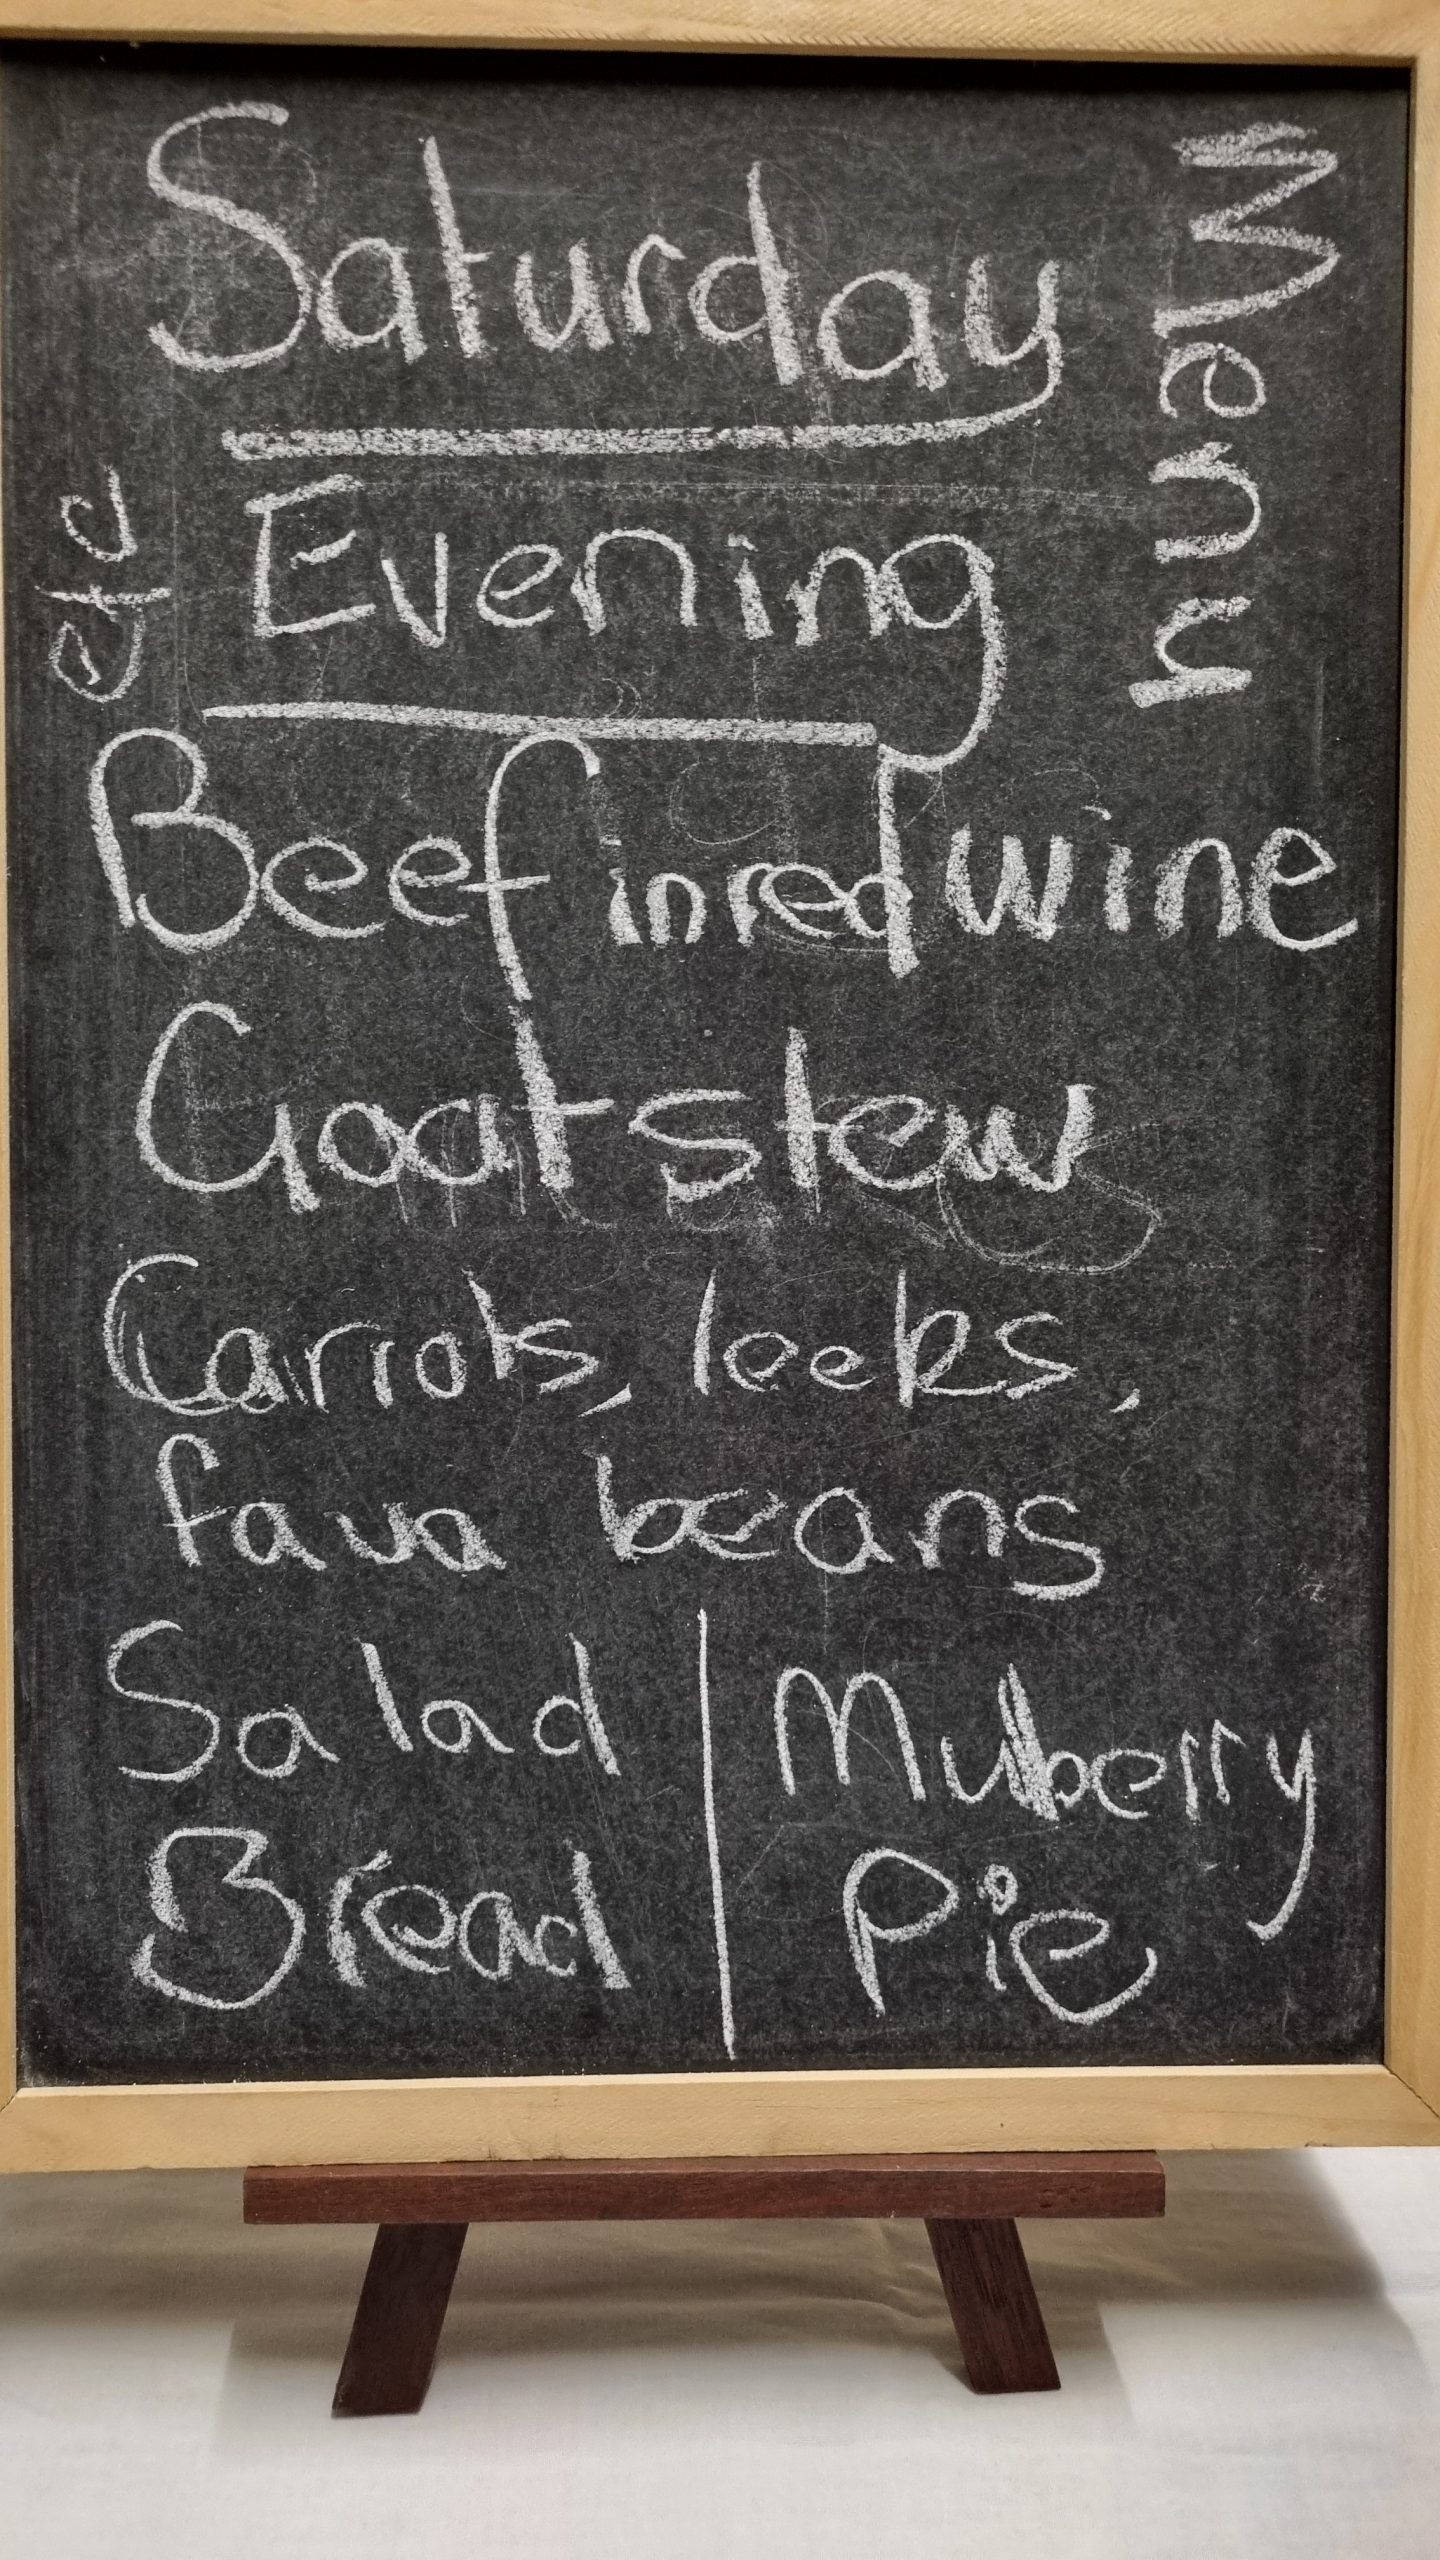 Saturday
Menu
Evening
etc
Beef in red wine
Goat stew
Carrots, leeks,
fava beans
Salad
Bread
Mulberry
Pie